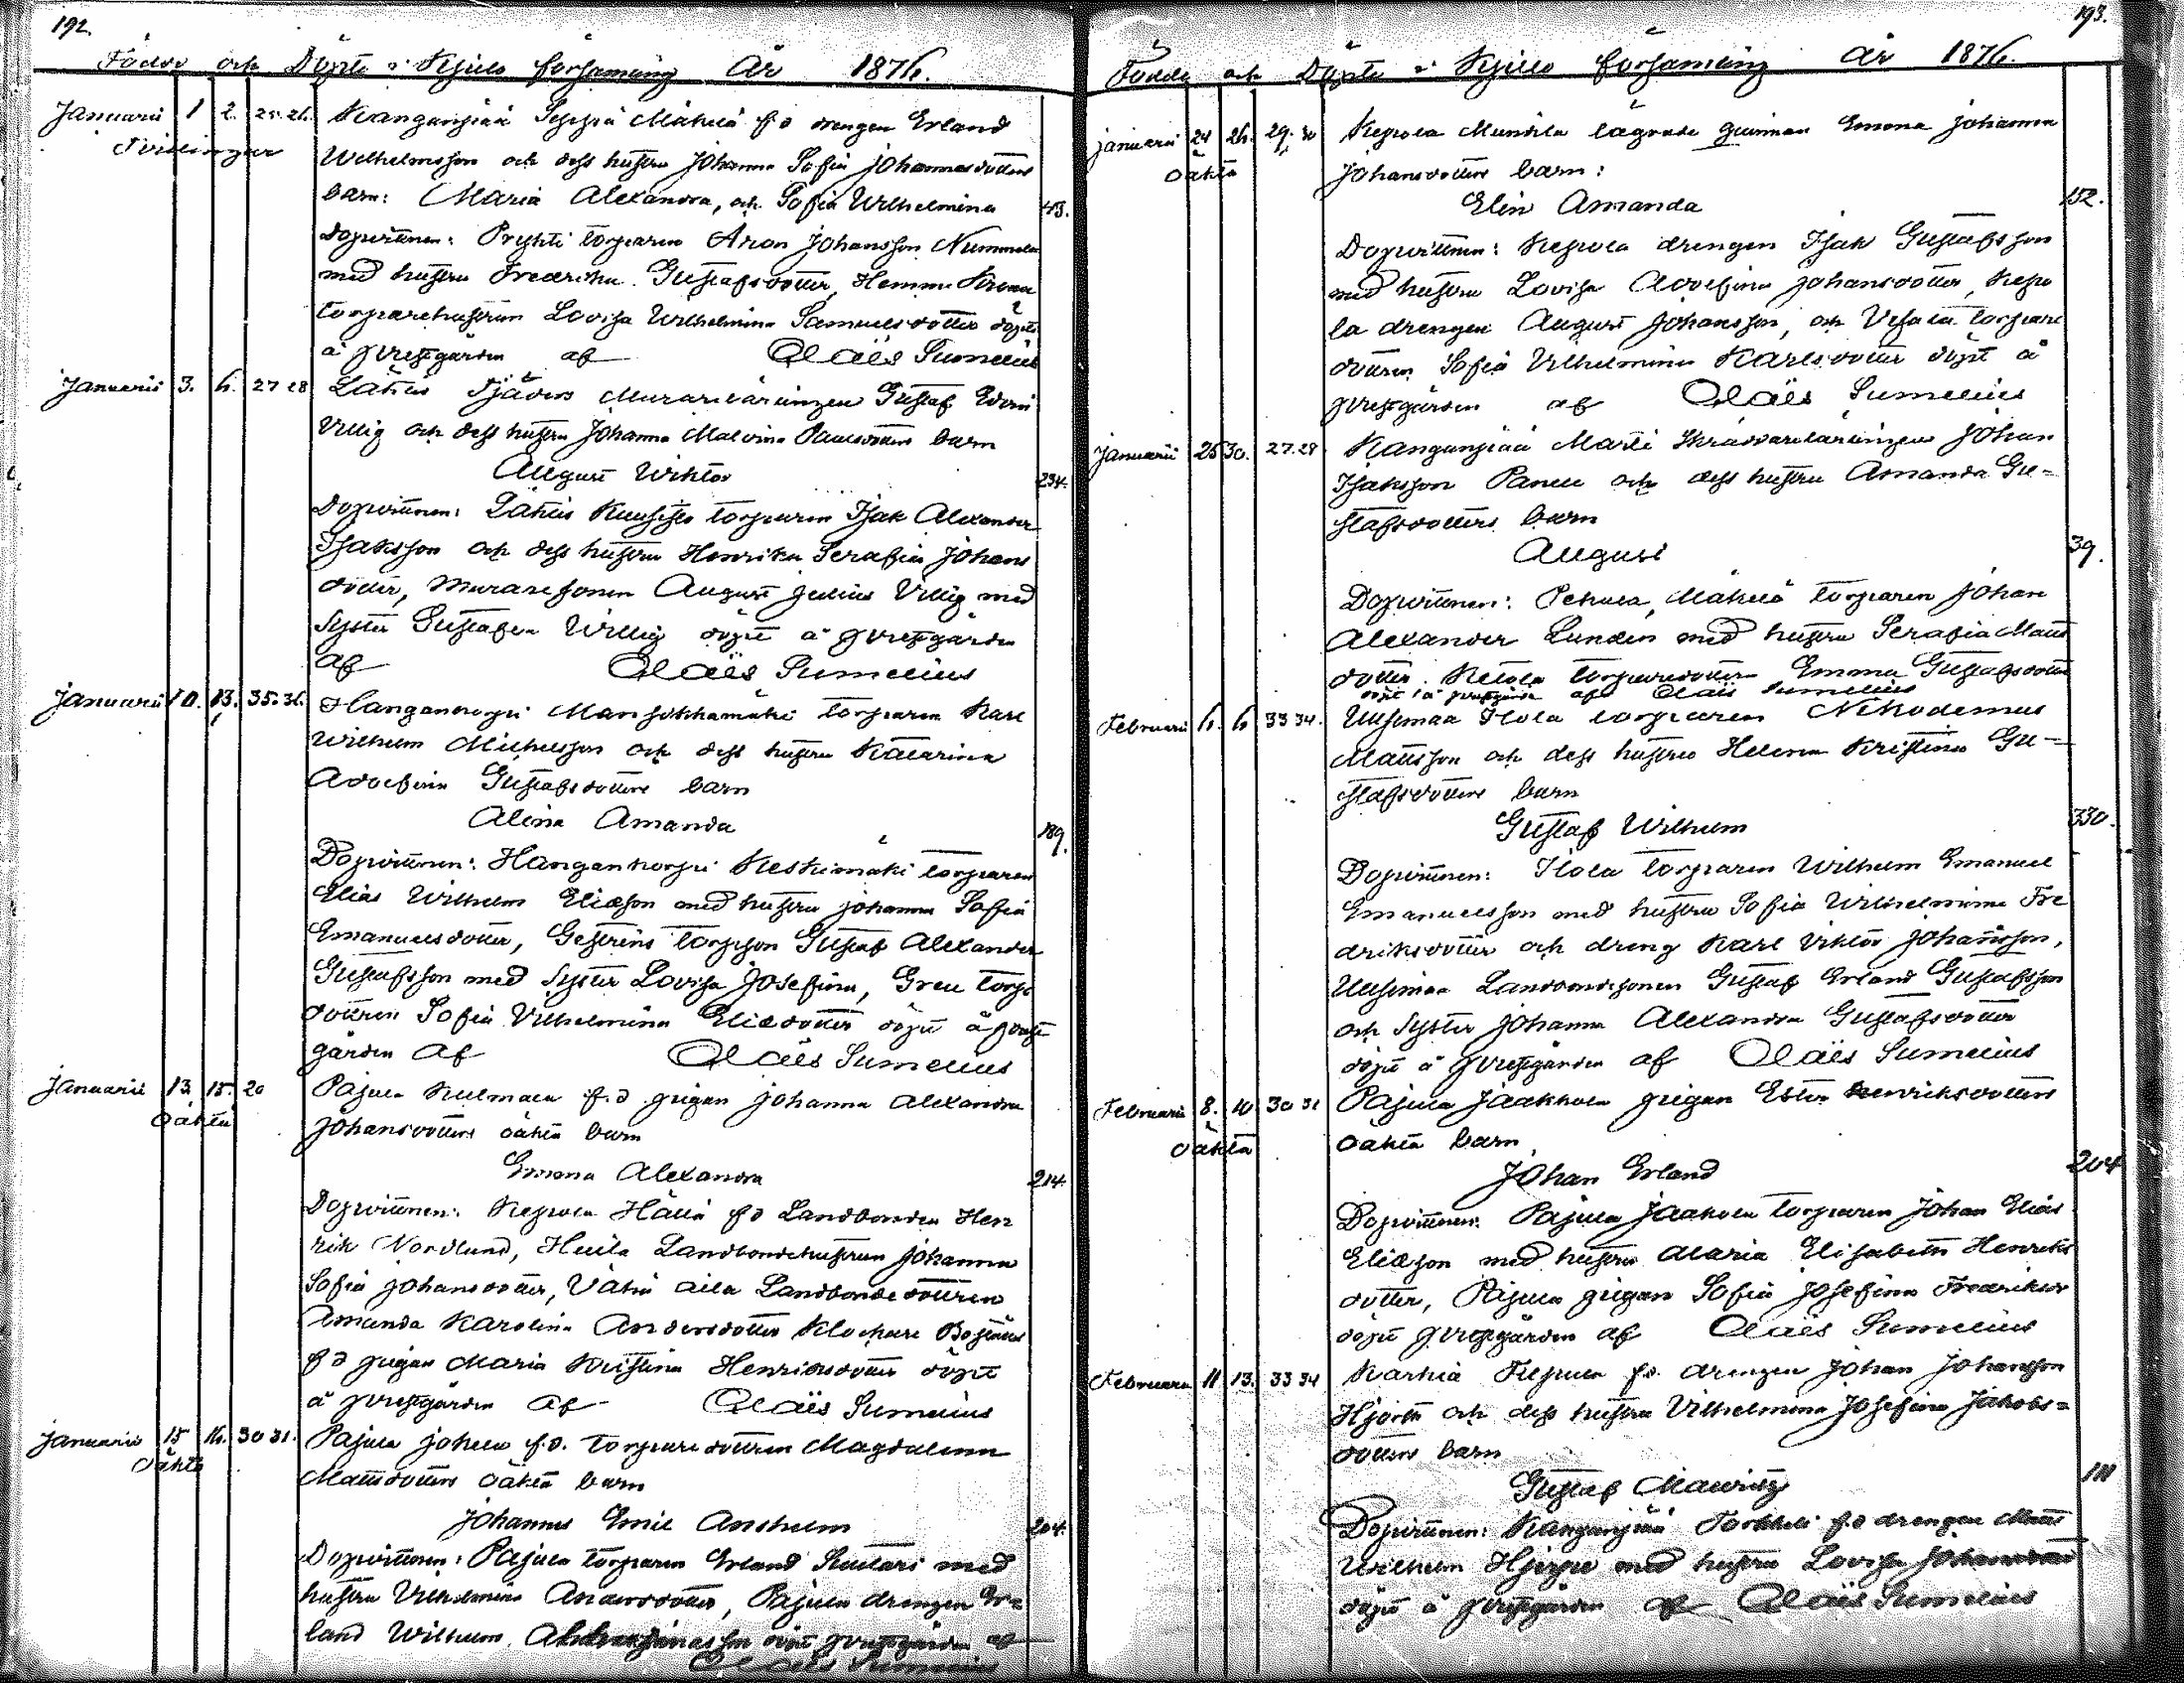 192.
Födde och Döpte i Kjulo församling År 1876.
Januarii 1 2. 25. 26. Kanganpää Seppä Mäkilä f d drengen Erland
Tvillingar Wilhelmsson och dess hustru Johanna Sofia Johannesdotters
barn: Maria Alexandra, och Sofia Wilhelmina 43.
Dopvittnen: Pryhti torparen Aron Johansson Nummela
med hustru Fredrika Gustafsdotter, Hemmi
torparehustrun Lovisa Wilhelmina Samuelsdotter döpte
å prestgården af Claës Sumelius
Januarii 3. 6. 27 28 Lähtis Murarelärlingen Gustaf Edvin
Villig och dess hustru Johanna Malvina Paulsdotters barn
August Wiktor 234.
Dopvittnen: Lähtis Kuusisto torparen Isak Alexander
Isaksson och dess hustru Henrika Serafia Johans
dotter, Muraresonen August Julius Villig med
Syster Gustafva Willig döpt å prestgården
af Claës Sumelius
Januarii 10. 13. 35. 36. Hangankorpi torparen Karl
Wilhelm Michelsson och dess hustru Katarina
Adolfina Gustafsdotters barn
Alina Amanda 189.
Dopvittnen: Hangankorpi Keskimäki torparen
Elias Wilhelm Eliæson med hustru Johanna Sofia
Emanuelsdotter, torpson Gustaf Alexander
Gustafsson med Syster Lovisa Josefina, Greu torp
dottren Sofia Vilhelmina Eliædotter döpt å prest
gården af Claës Sumelius
Januarii 13. 15. 20 Pajula Kulmala f.d. pigan Johanna Alexandra
Oäkta Johansdotters oäkta barn
Emma Alexandra 214.
Dopvittnen: Kepola Hälliä f d Landbonden Hen
rik Nordlund, Huila Landbondehustrun Johanna
Sofia Johansdotter, Vähä aila Landbondedottren
Amanda Karolina Andersdotter Klockare
f d pigan Maria Kristina Henriksdotter döpt
å prestgården af Claës Sumelius
Januarii 15 16. 30 31. Pajula f.d. torparedottren Magdalena
Oäkta Mattsdotters oäkta barn
Johannes Emil Anshelm 204.
Dopvittnen: Pajula torparen Erland med
hustru Vilhelmina Andersdotter, Pajula drengen Er=
land Wilhelm döpt prestgården af
Claës Sumelius
193.
Födde och Döpte i Kjulo församling År 1876.
Januarii 24 26. 29. 30 Kepola Mundila lägrade qvinnan Emma Johanna
Oäkta Johansdotters barn:
Elin Amanda 152.
Dopvittnen: Kepola drengen Isak Gustafsson
med hustru Lovisa Adolfina Johansdotter, Kepo
la drengen August Johansson, och torpare
dottren Sofia Vilhelmina Karlsdotter döpt å
prestgården af Claës Sumelius
Januarii 25 30. 27. 28. Kanganpää Martti Skräddarelärlingen Johan
Isaksson Panu och dess hustru Amanda Gu=
stafsdotters barn
August 39.
Dopvittnen: Pehula, Mäkilä torparen Johan
Alexander Lunden med hustru Serafia Matts
dotter. Ketola torparedotter Emma Gustafsdotter
döpt å prestgården af Claës Sumelius
Februarii 6. 6 33 34. Uusimaa Ilola torparen Nikodemus
Mattsson och dess hustru Helena Kristina Gu=
stafsdotters barn
Gustaf Wilhelm 330.
Dopvittnen: Ilola torparen Wilhelm Emanuel
Emanuelsson med hustru Sofia Wilhelmina Fre
driksdotter och dreng Karl Viktor Johansson,
Uusimaa Landbondesonen Gustaf Erland Gustafsson
och Syster Johanna Alexandra Gustafsdotter
döpt å prestgården af Claës Sumelius
Februarii 8. 10 30 31 Pajula Jaakkola pigan Ester Henriksdotters
Oäkta oäkta barn
Johan Erland 204
Dopvittnen: Pajula Jaakola torparen Johan Elias
Eliæson med hustru Maria Elisabeth Henriks
dotter, Pajula pigan Sofia Josefina Fredriksd
döpt prestgården af Claës Sumelius
Februarii 11 13. 33 34 Karhia f.d. drengen Johan Johansson
Hjorth och dess hustru Vilhelmina Josefina Jakobs=
dotters barn
Gustaf Mauritz 111
Dopvittnen: Kanganpää Torkkeli f.d drengen Matts
Wilhelm Hjerpe med hustru Lovisa Johansdotter
döpt å prestgården af Claës Sumelius